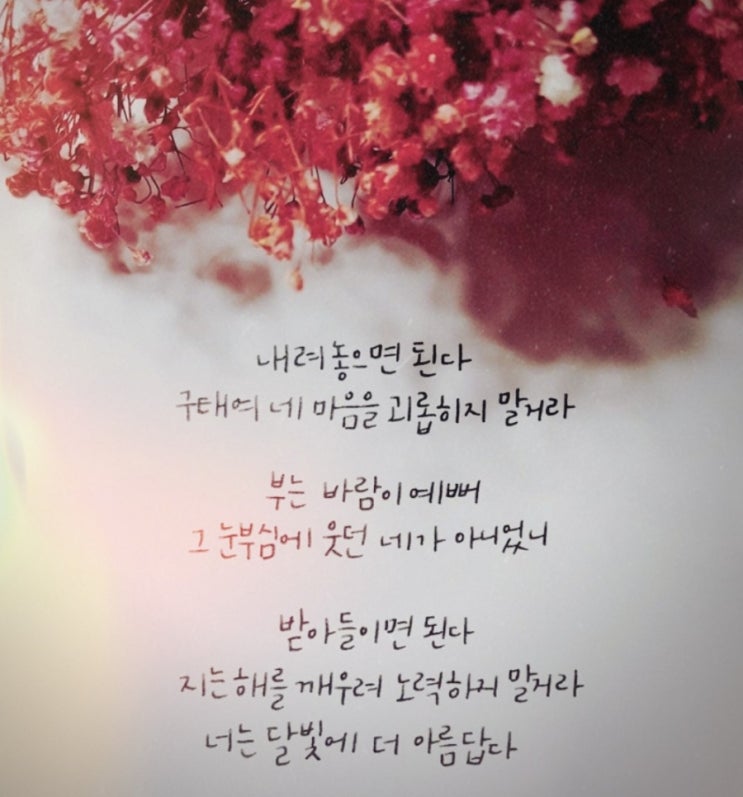 내려놓으면 된다
구태여 네 마음을 괴롭히지 말거라
부는 바람이 예뻐
그 눈부심에 웃던 네가 아니었니
받아들이면 된다
지는 해를 깨우려 노력하지 말거라
너는 달빛에 더 아름답다